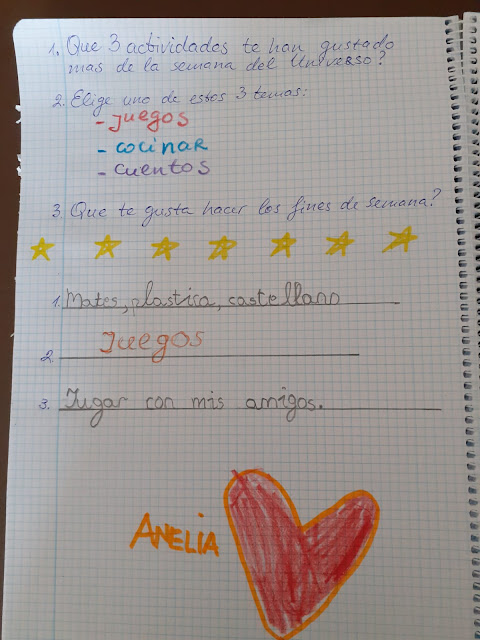 1. Que 3 actividades te han gustado
mas de la semana del Universo?
2. Elige uno de estos 3 temas:
- Juegos
- cocinar
- cuentos
3. Que te gusta hacer los fines de semana?
1. Mates, plastica, castellano
2. Juegos
3. Jugar con mis amigos.
ANELIA